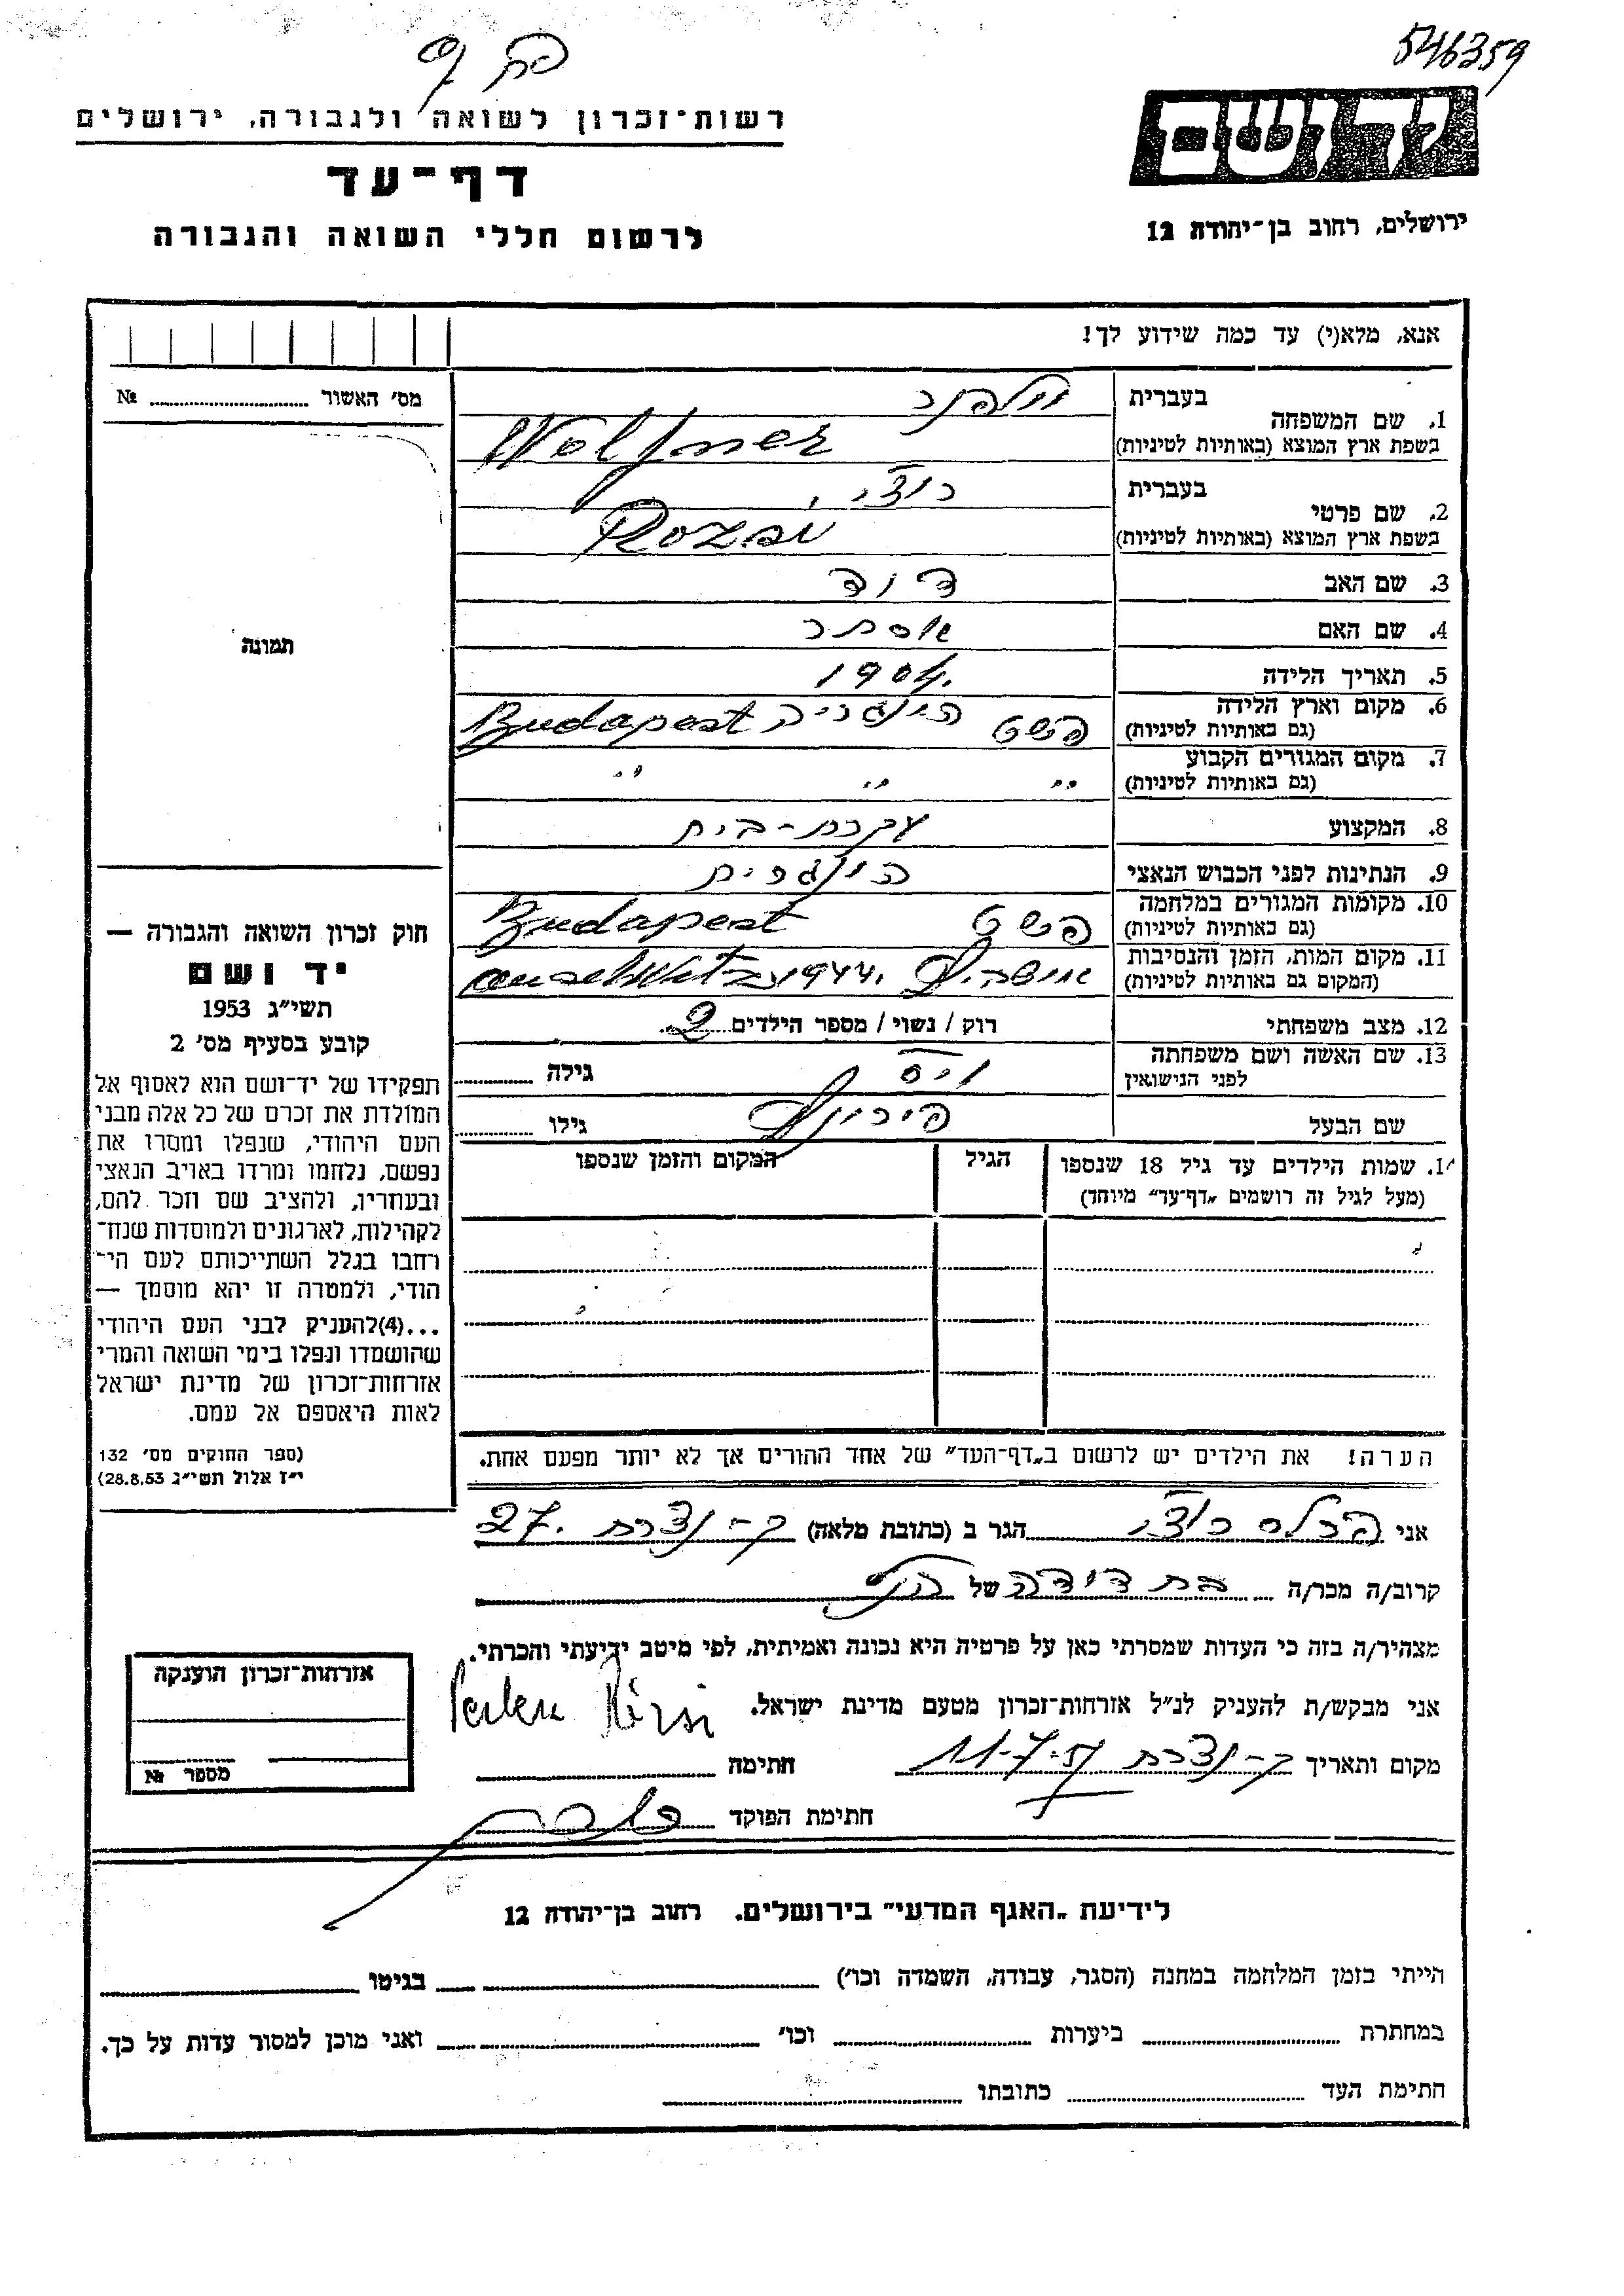 546359
יד ושם
ירושלים, רחוב בן-יהודה 12
רשות-זכרון לשואה ולגבורה, ירושלים
דף-עד
לרשום חללי השואה והגבורה
אנא, מלא(י) עד כמה שידוע לך!
מס' האשור № 
בעברית וולפנר
1. שם המשפחה
בשפת ארץ המוצא (באותיות לטיניות) Wolfner
בעברית רוז'י
2. שם פרטי
בשפת ארץ המוצא (באותיות לטיניות) Rozsi
3. שם האב דוד
4. שם האם אסתר
5. תאריך הלידה 1904.
6. מקום וארץ הלידה
(גם באותיות לטיניות) פשט הונגריה Budapest
7. מקום המגורים הקבוע
(גם באותיות לטיניות) " " "
8. המקצוע עקרת-בית
9. הנתינות לפני הכבוש הנאצי הונגרית
10. מקומות המגורים במלחמה
(גם באותיות לטיניות) פשט Budapest
11. מקום המות, הזמן והנסיבות
(המקום גם באותיות לטיניות) 1944. auschWitz
12. מצב משפחתי רוק / נשוי / מספר הילדים 2
13. שם האשה ושם משפחתה
לפני הנישואין וייס גילה
שם הבעל גילו
14. שמות הילדים עד גיל 18 שנספו
(מעל לגיל זה רושמים "דף-עד" מיוחד)
הגיל
המקום והזמן שנספו
הערה! את הילדים יש לרשום ב"דף-העד" של אחד ההורים אך לא יותר מפעם אחת.
תמונה
חוק זכרון השואה והגבורה —
יד ושם
תשי"ג 1953
קובע בסעיף מס' 2
תפקידו של יד-ושם הוא לאסוף אל
המולדת את זכרם של כל אלה מבני
העם היהודי, שנפלו ומסרו את
נפשם, נלחמו ומרדו באויב הנאצי
ובעוזריו, ולהציב שם וזכר להם,
לקהילות, לארגונים ולמוסדות שנח־
רבו בגלל השתייכותם לעם הי־
הודי, ולמטרה זו יהא מוסמך —
...(4)להעניק לבני העם היהודי
שהושמדו ונפלו בימי השואה והמרי
אזרחות-זכרון של מדינת ישראל
לאות היאספם אל עמם.
(ספר החוקים מס' 132
י"ז אלול תשי"ג 28.8.53)
אני פרלס רוז'י הגר ב (כתובת מלאה) ק-נצרת 27.
קרוב/ה מכר/ה בת דודה של הנ"ל
מצהיר/ה בזה כי העדות שמסרתי כאן על פרטיה היא נכונה ואמיתית, לפי מיטב ידיעתי והכרתי.
אני מבקש/ת להעניק לנ"ל אזרחות-זכרון מטעם מדינת ישראל.
מקום ותאריך ק-נצרת 11-7-57 חתימה
חתימת הפוקד
אזרחות-זכרון הוענקה
מספר №
לידיעת "האגף המדעי" בירושלים. רחוב בן-יהודה 12
הייתי בזמן המלחמה במחנה (הסגר, עבודה, השמדה וכו') בגיטו
במחתרת ביערות וכו' ואני מוכן למסור עדות על כך.
חתימת העד כתובתו